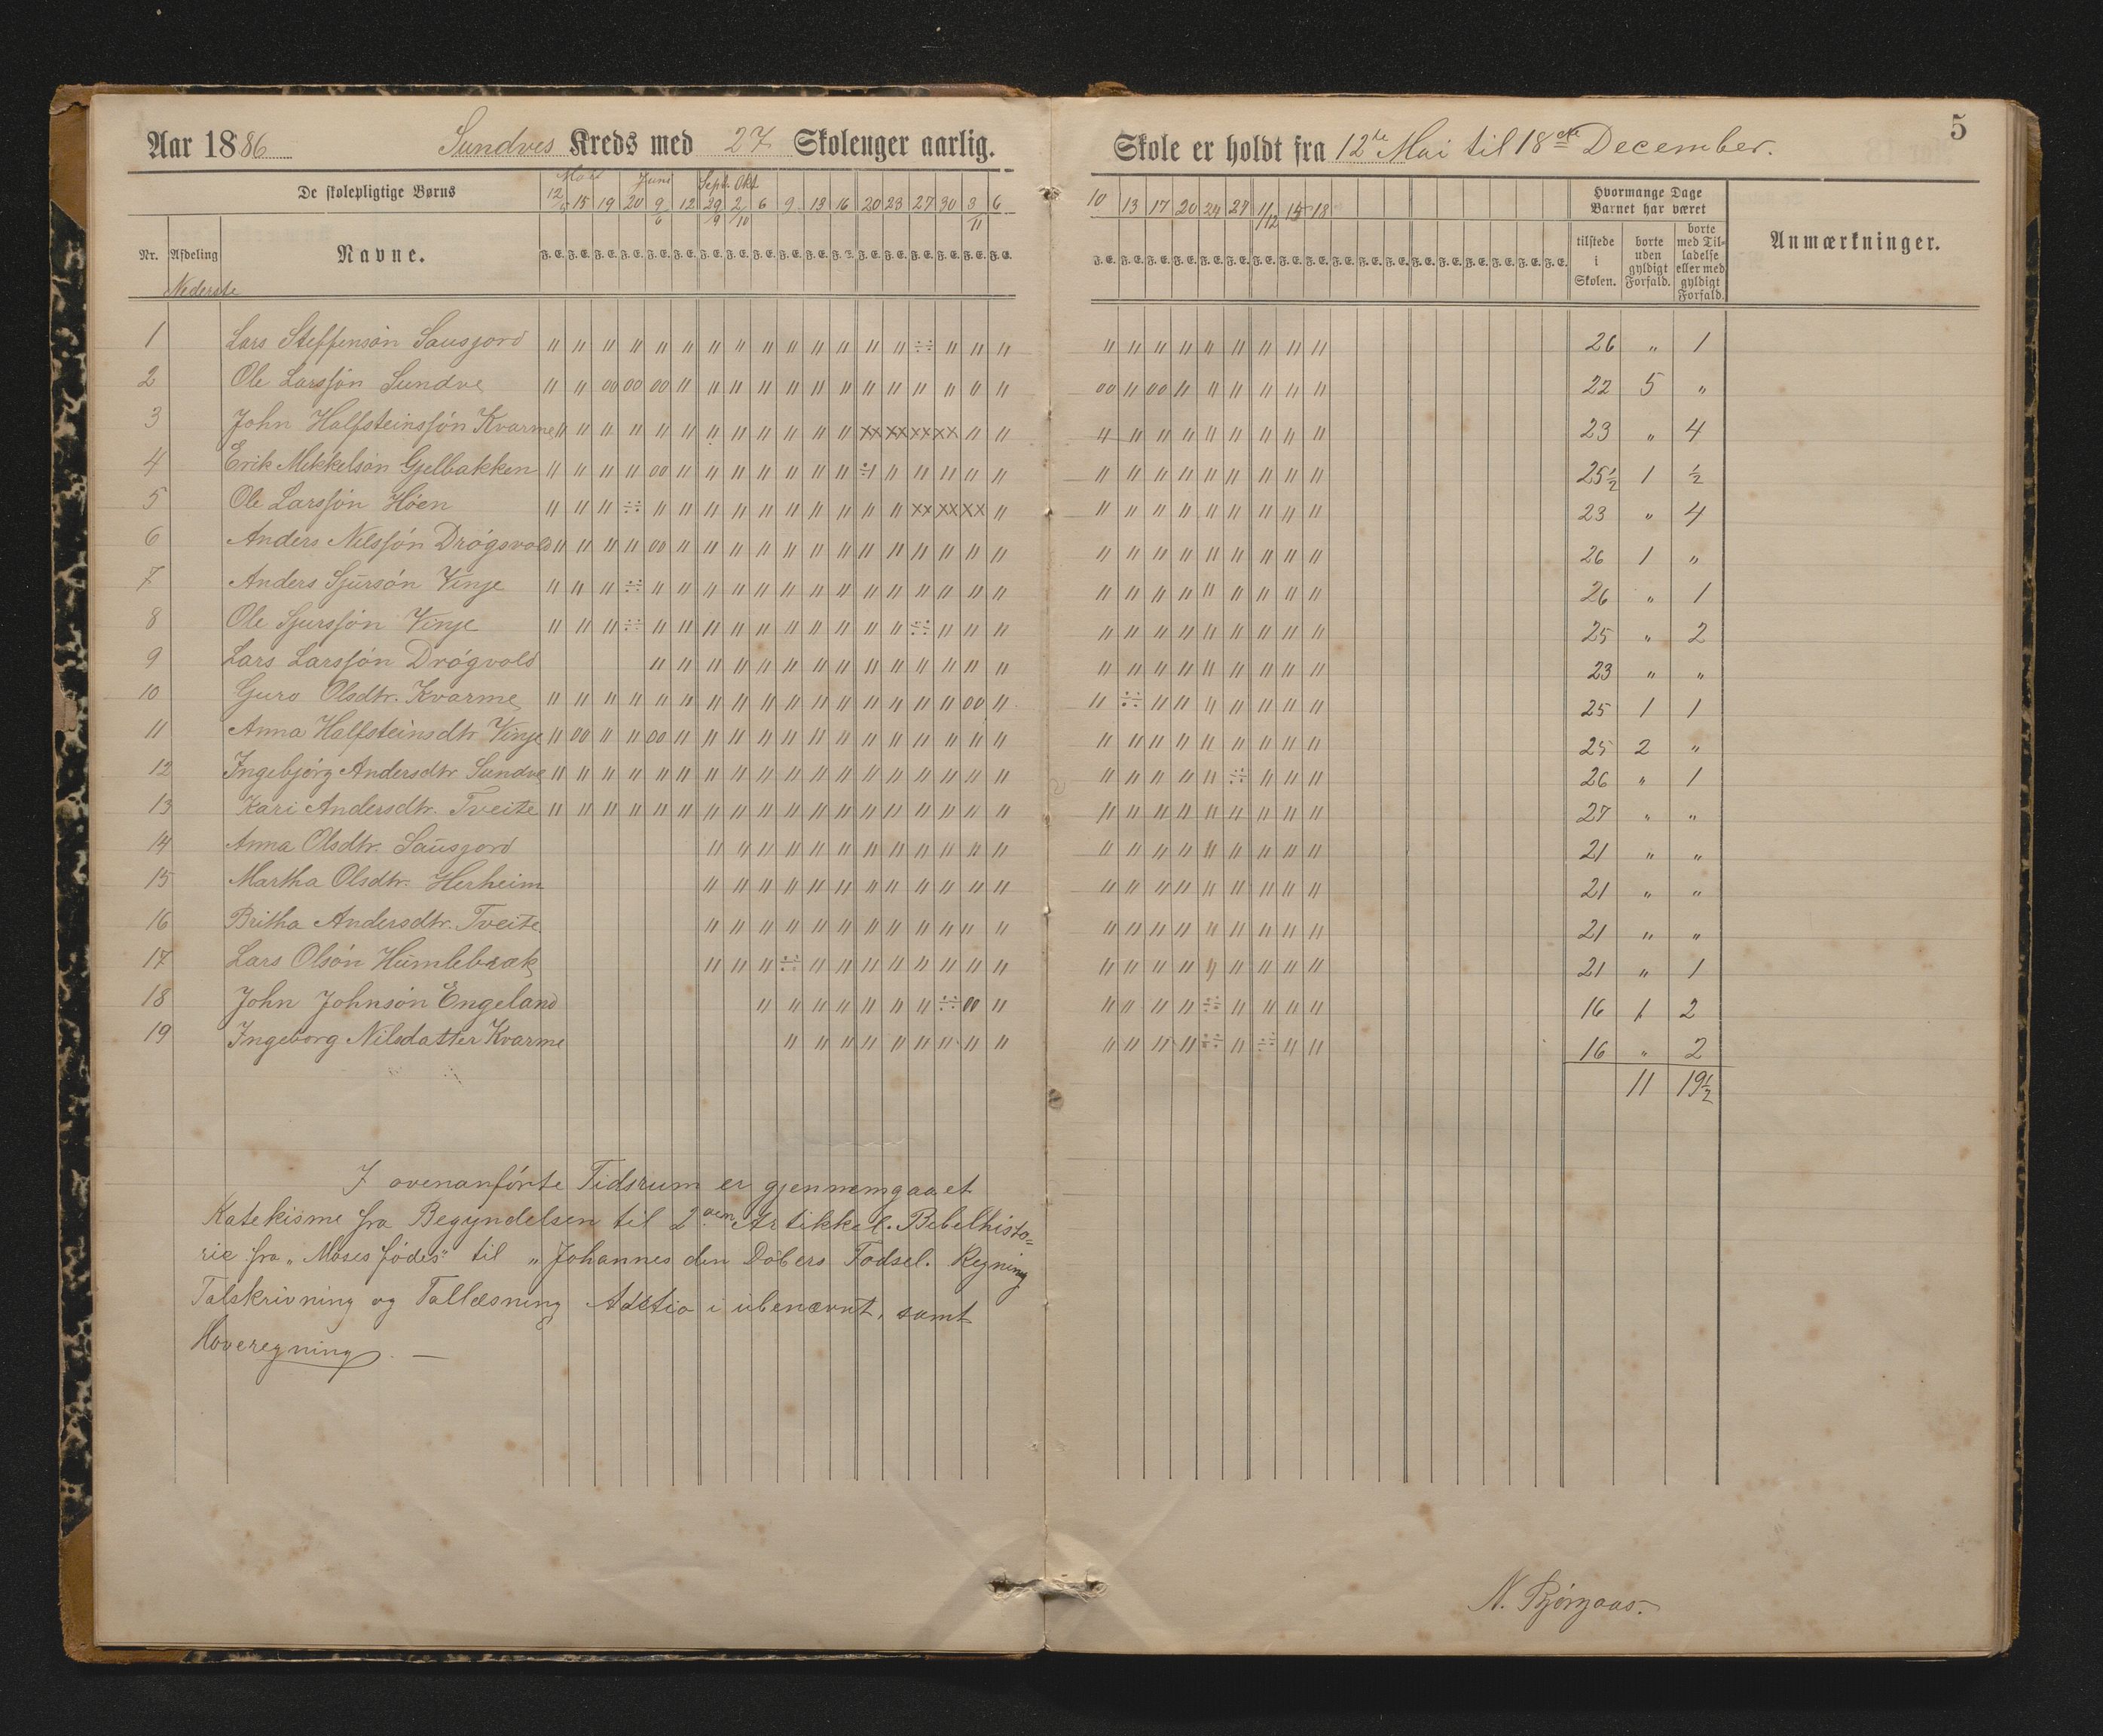 5
Aar 1886 Sundves Kreds med 27 Skolenger aarlig. Skole er holdt fra 12te Mai til 18de December.
De skolepligtige Børns
Mai Juni Sept. Okt
12/5 15 19 20 9/6 12 29/9 2/10 6 9 13 16 20 23 27 30 3/11 6
10 13 17 20 24 27 1/12 15 18
Hvormange Dage Barnet har været
Nr. Afdeling Navne.
F. E. F. E. F. E. F. E. F. E. F. E. F. E. F. E. F. E. F. E. F. E. F. E. F. E. F. E. F. E. F. E. F. E. F. E.
tilstede i Skolen. borte uden gyldigt Forfald. borte med Tilladelse eller med gyldigt Forfald. Anmærkninger.
Nederste
1 Lars Steffenson Sausjord 26 " 1
2 Ole Larssjön Sundve 22 5 "
3 John Halfsteinssjön Kvarme 23 " 4
4 Erik Mikkelson Gjelbakken 25½ 1 ½
5 Ole Larssjön Höen 23 " 4
6 Anders Nilssjön Drögsvold 26 1 "
7 Anders Sjursón Vinje 26 " 1
8 Ole Sjurssjön Vinje 25 " 2
9 Lars Larssjön Drögvold 23 " "
10 Guro Olsdtr. Kvarme 25 1 1
11 Anna Halfsteinsdtr Vinje 25 2 "
12 Ingebjörg Andersdtr. Sundve 26 " 1
13 Kari Andersdtr. Tveite 27 " "
14 Anna Olsdtr. Sausjord 21 " "
15 Martha Olsdtr. Herheim 21 " "
16 Britha Andersdtr. Tveite 21 " "
17 Lars Olsön Humlebræk 21 " 1
18 John Johnsön Engeland 16 1 2
19 Ingeborg Nilsdatter Kvarme 16 " 2
11 19½
I ovenanförte Tidsrum er gjennemgaaet
Katekisme fra Begyndelsen til 2den Artikkel. Bibelhisto=
rie fra "Moses födes" til "Johannes den Döbers Födsel. Regning
Talskrivning og Tallæsning Additio i ubenævnt, samt
Hoveregning. —
N. Björgaas.